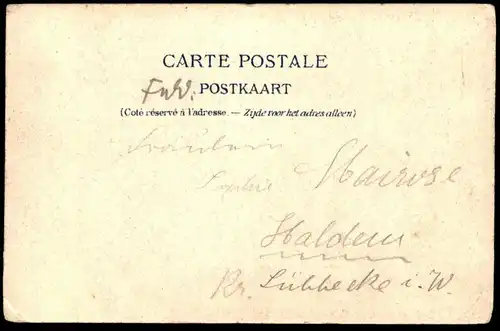 CARTE POSTALE
POSTKAART
(Coté réservé à l'adresse. — Zijde voor het adres alleen)
Fräulein
Sophie Mairose
Haldem
Kr. Lübbecke i. W.